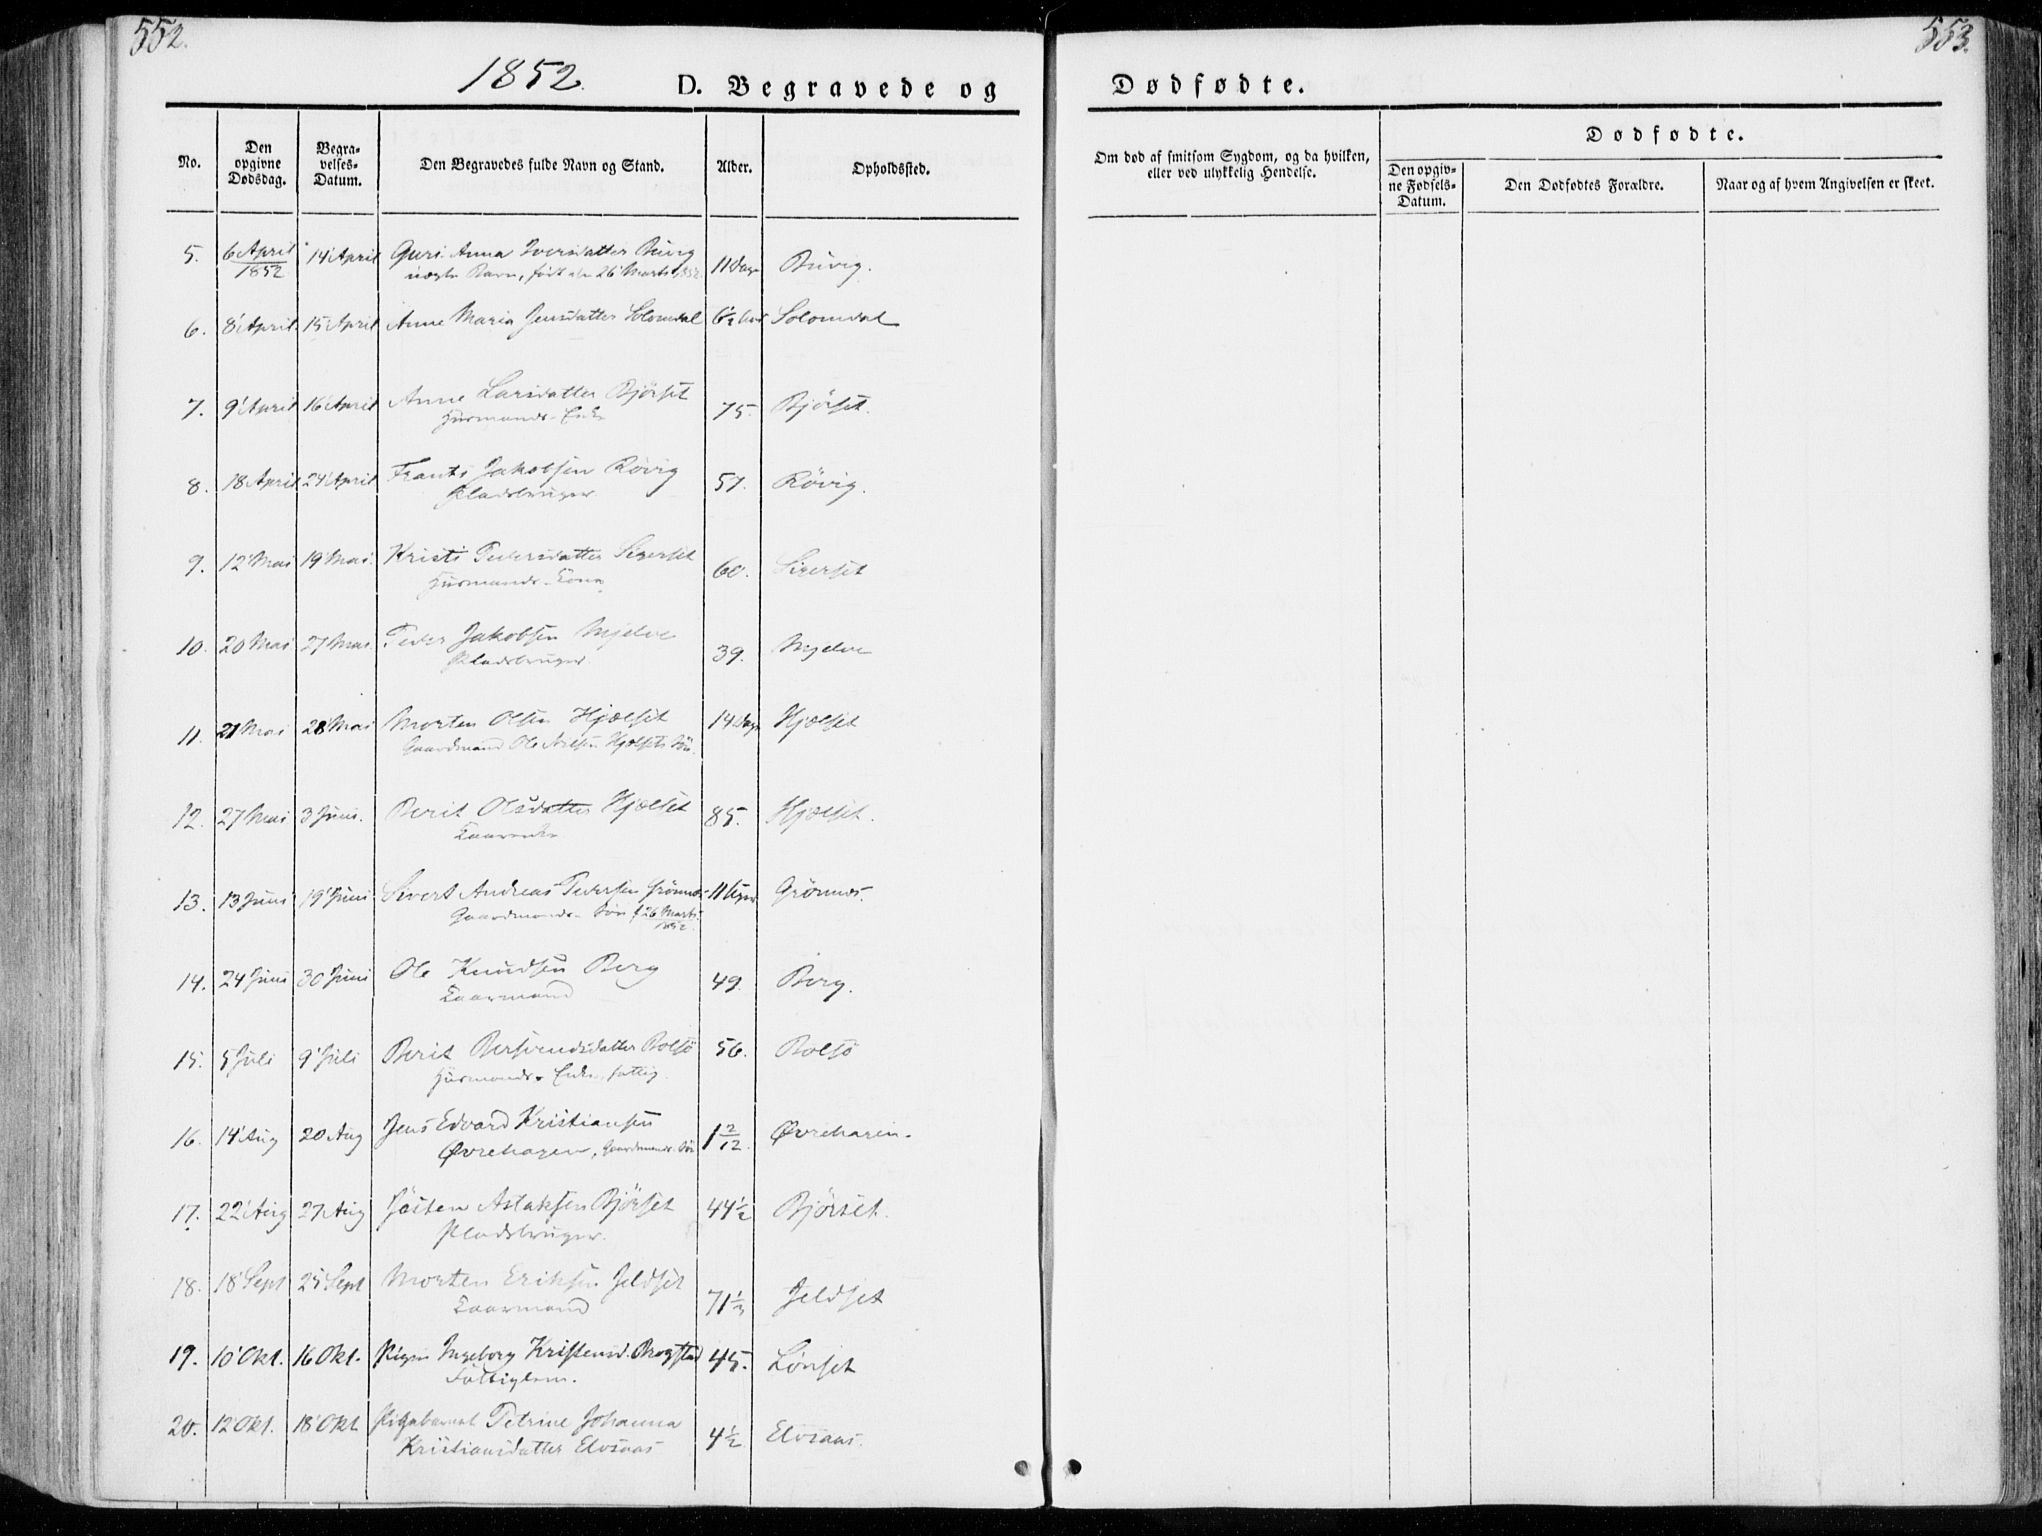 552.
553.
1852
D. Begravede og
Dødfødte.
No.
Den opgivne Dødsdag.
Begravelses-Datum.
Den Begravedes fulde Navn og Stand.
Alder.
Opholdssted.
Om død af smitsom Sygdom, og da hvilken,
eller ved ulykkelig Hendelse.
Dødfødte.
Den opgivne Fødsels-Datum.
Den Dødfødtes Forældre.
Naar og af hvem Angivelsen er skeet.
5. 6 April 1852 14 April Guri Anna Iversdatter Buvig 11 Dage Buvig.
uægte Barn, født den 26 Marts 1852
6. 8 April. 15 April Anne Maria Jensdatter Solomdal 6½ Solomdal
7. 9 April 16 April Anne Larsdatter Bjørset 75. Bjørset.
Huusmands-Enke
8. 18 April 24 April Frants Jakobsen Røvig 57. Røvig.
Pladsbruger
9. 12 Mai 19 Mai. Kristi Pedersdatter 60.
Huusmands-Kone
10. 20 Mai 27 Mai Peder Jakobsen Mjelve 39. Mjelve
Pladsbruger.
11. 21 Mai 28 Mai Morten Olsen Hjælset 14 Dage Hjælset
Gaardmand Ole Hjælsets Søn.
12. 27 Mai 3 Juni. Berit Olsdatter Hjælset 85. Hjælset.
Kaarenke
13. 13 Juni 19 Juni Sivert Andreas Pedersen Grønnes 11 Uger Grønnes.
Gaardmands-Søn f 26 Marts 1852
14. 24 Juni 30 Juni Ole Knudsen Berg 49. Berg.
Kaarmand
15. 5 Juli 9 Juli Berit Bersvendsdatter Bolsø 56. Bolsø
Huusmands-Enke, fattig.
16. 14 Aug 20 Aug Jens Edvard Kristiansen 1 2/12 Øvrehagen.
Øvrehagen, Gaardmands-Søn
17. 22 Aug 27 Aug Jøsten Aslaksen Bjørset 44½ Bjørset.
Pladsbruger.
18. 18 Sept 25 Sept Morten Eriksen Jeldset 71½ Jeldset
Kaarmand
19. 10 Okt. 16 Okt. Pigen Ingeborg Kristensd. 45. Lønset
Fattiglem.
20. 12 Okt. 18 Okt Pigebarnet Petrine Johanna 4½ Elvsaas.
Kristiansdatter Elvsaas